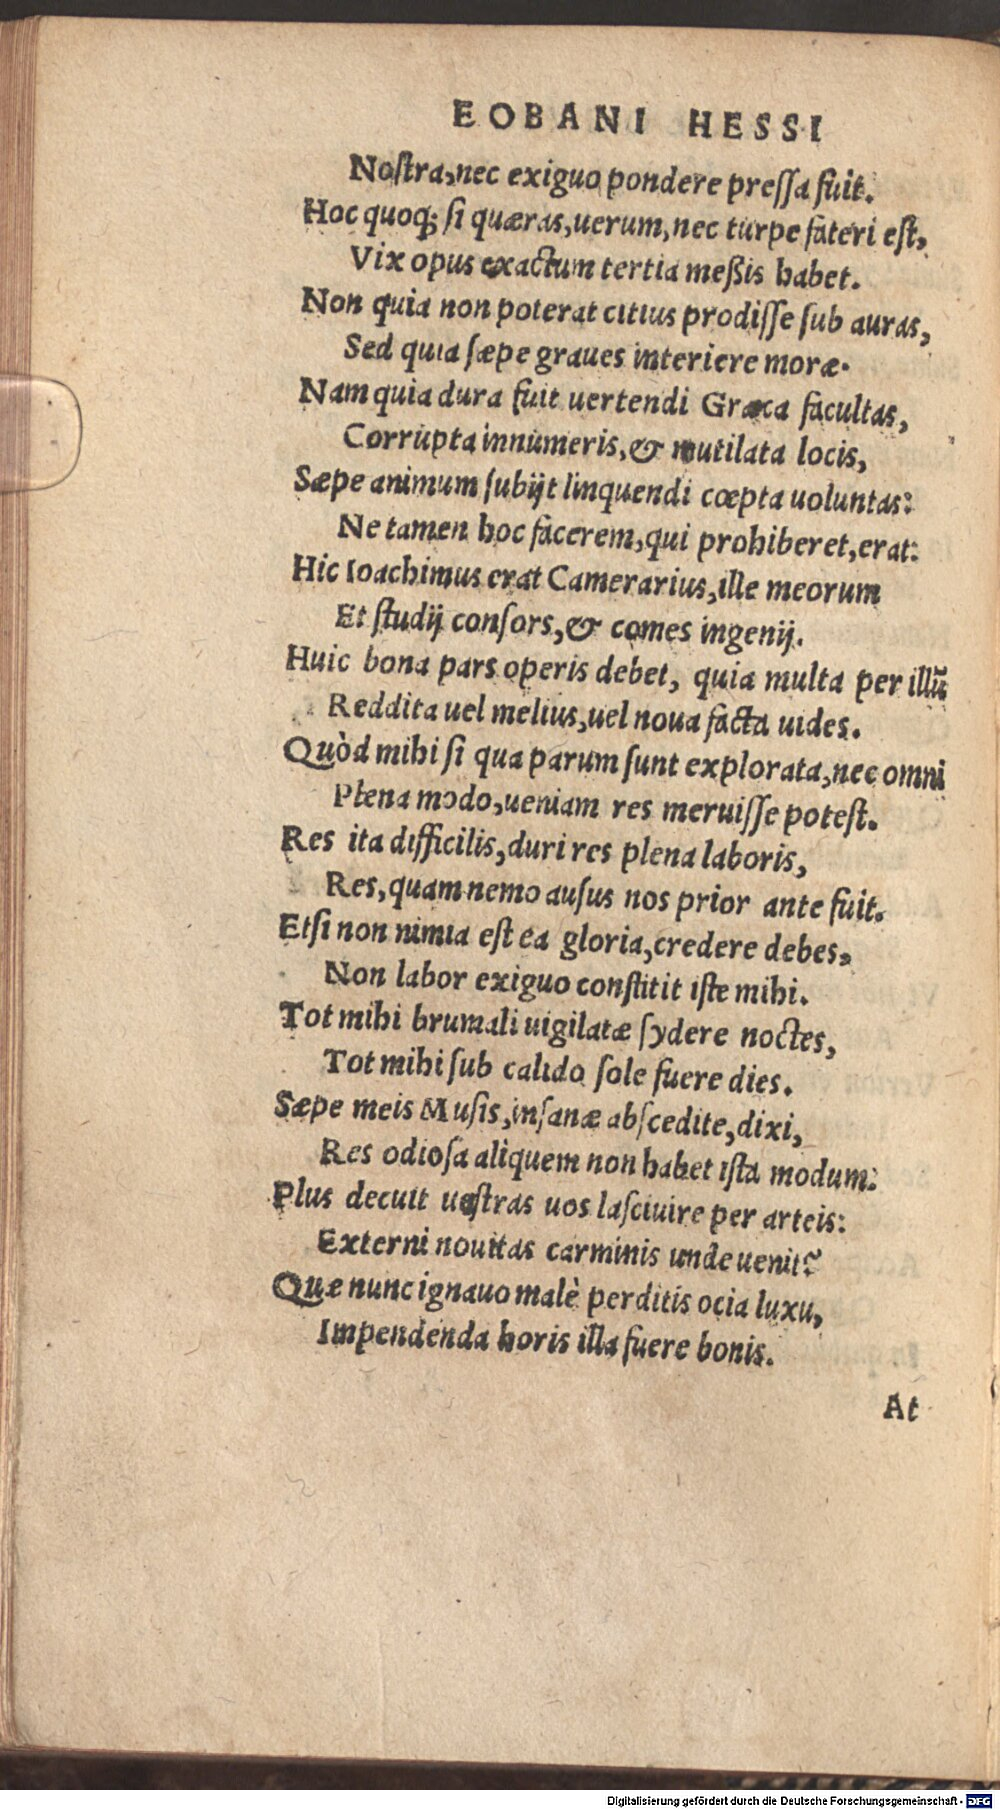 EOBANI HESSI
Nostra, nec exiguo pondere pressa fuit.
Hoc quoq; si quæras, uerum, nec turpe fateri est,
Vix opus exactum tertia meßis habet.
Non quia non poterat citius prodisse sub auras,
Sed quia sæpe graues interiere moræ.
Nam quia dura fuit uertendi Græca facultas,
Corrupta innumeris, & mutilata locis,
Sæpe animum subijt linquendi cœpta uoluntas:
Ne tamen hoc facerem, qui prohiberet, erat:
Hic Ioachimus erat Camerarius, ille meorum
Et studij consors, & comes ingenij.
Huic bona pars operis debet, quia multa per illũ
Reddita uel melius, uel noua facta uides.
Quòd mihi si qua parum sunt explorata, nec omni
Plena modo, ueniam res meruisse potest.
Res ita difficilis, duri res plena laboris,
Res, quam nemo ausus nos prior ante fuit.
Etsi non nimia est ea gloria, credere debes,
Non labor exiguo constitit iste mihi.
Tot mihi brumali uigilatæ sydere noctes,
Tot mihi sub calido sole fuere dies.
Sæpe meis Musis, insanæ abscedite, dixi,
Res odiosa aliquem non habet ista modum:
Plus decuit uestras uos lasciuire per arteis:
Externi nouitas carminis unde uenit?
Quæ nunc ignauo malè perditis ocia luxu,
Impendenda horis illa fuere bonis.
At
Digitalisierung gefördert durch die Deutsche Forschungsgemeinschaft - DFG